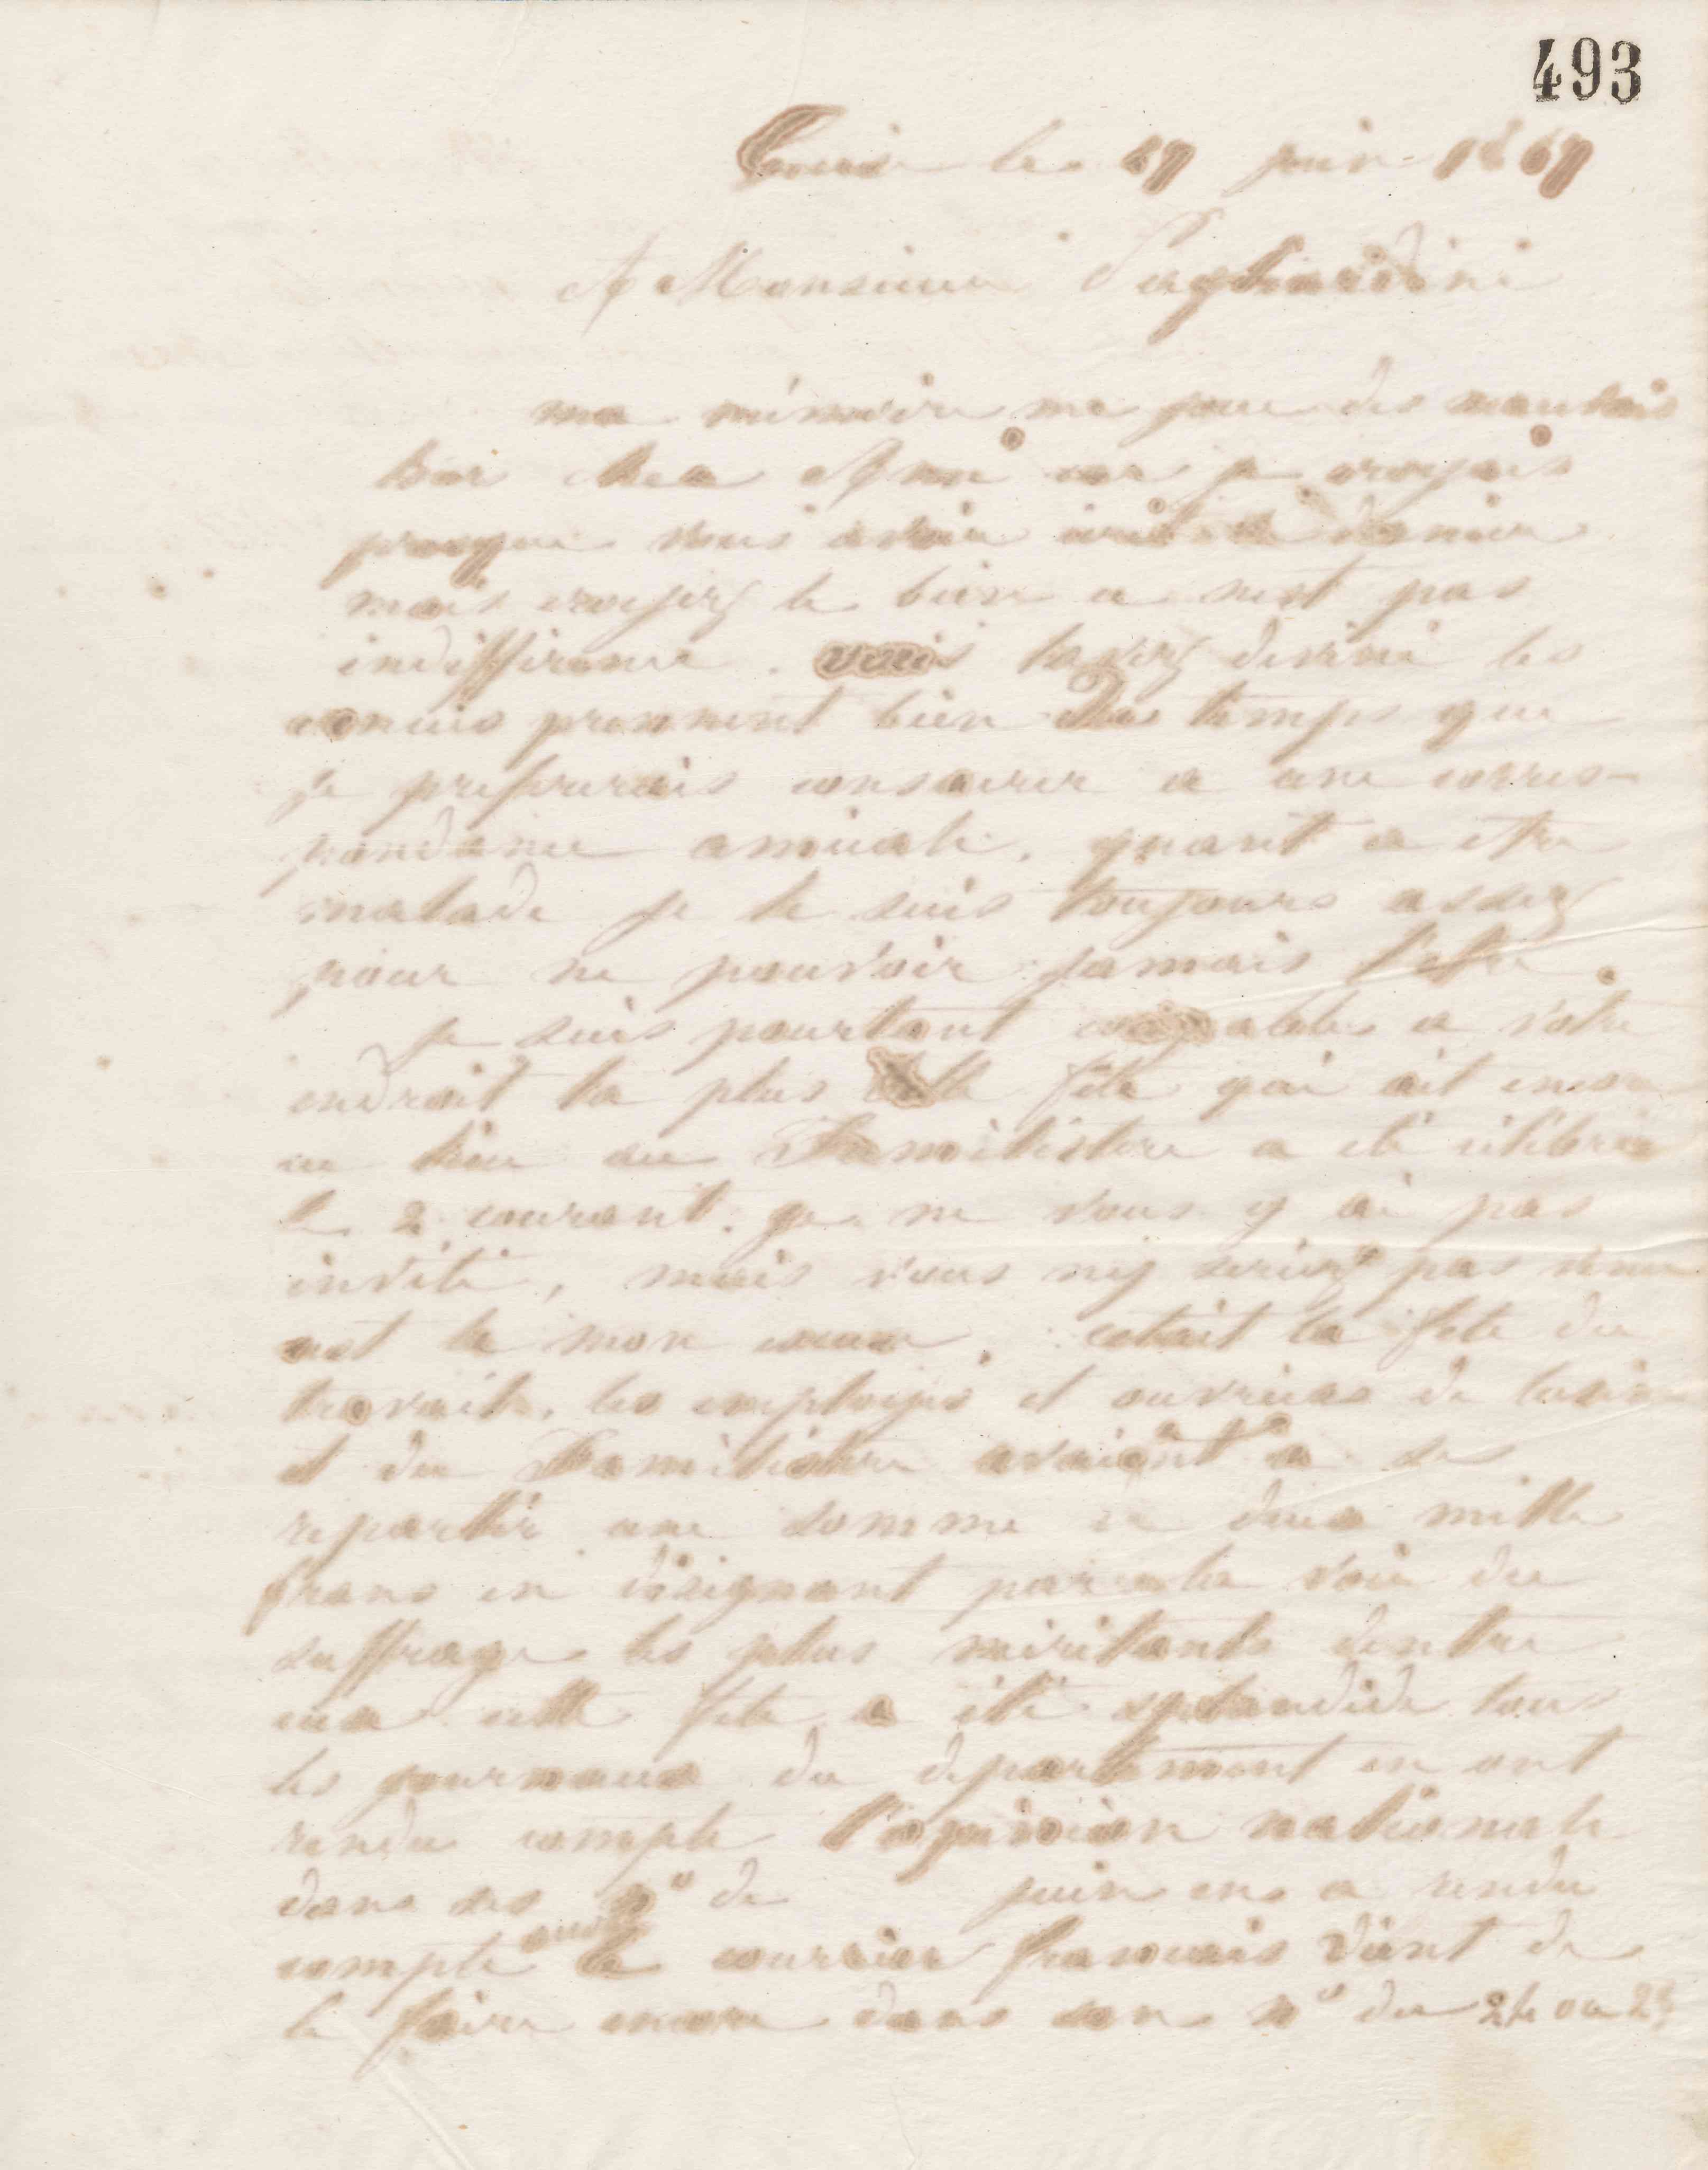 493
Guise le 27 juin 1867
A Monsieur Pagliardini
ma mémoire me joue des mauvais
tour cher Ami car je croyais
presque vous avoir écrit dernier
mais croyez le bien ce nest pas
indifférence. vous lavez deviné les
ennuis prennent bien des temps que
je prefererais consacrer a une corres-
pondance amicale. quant a etre
malade je le suis toujours assez
pour ne pouvoir jamais l'etre
je suis pourtant coupable a votre
endroit la plus belle fête qui ait encore
eu lieu au Familistère a été célébrée
le 2 courant. je ne vous y ai pas
invité, mais vous ny seriez pas venu
cest la mon excuse. cetait la fete du
travail. les employés et ouvriers de lusine
et du Familistère avaient a se
repartir une somme de deux mille
francs en désignant par la voie du
suffrage les plus méritants dentre
eux cette fete a été splendide tous
les journaux du departement en ont
rendu compte l'opinion nationale
dans ses nº de juin en a rendu
compte aussi le courrier francais vient de
le faire encore dans son nº du 24 ou 25